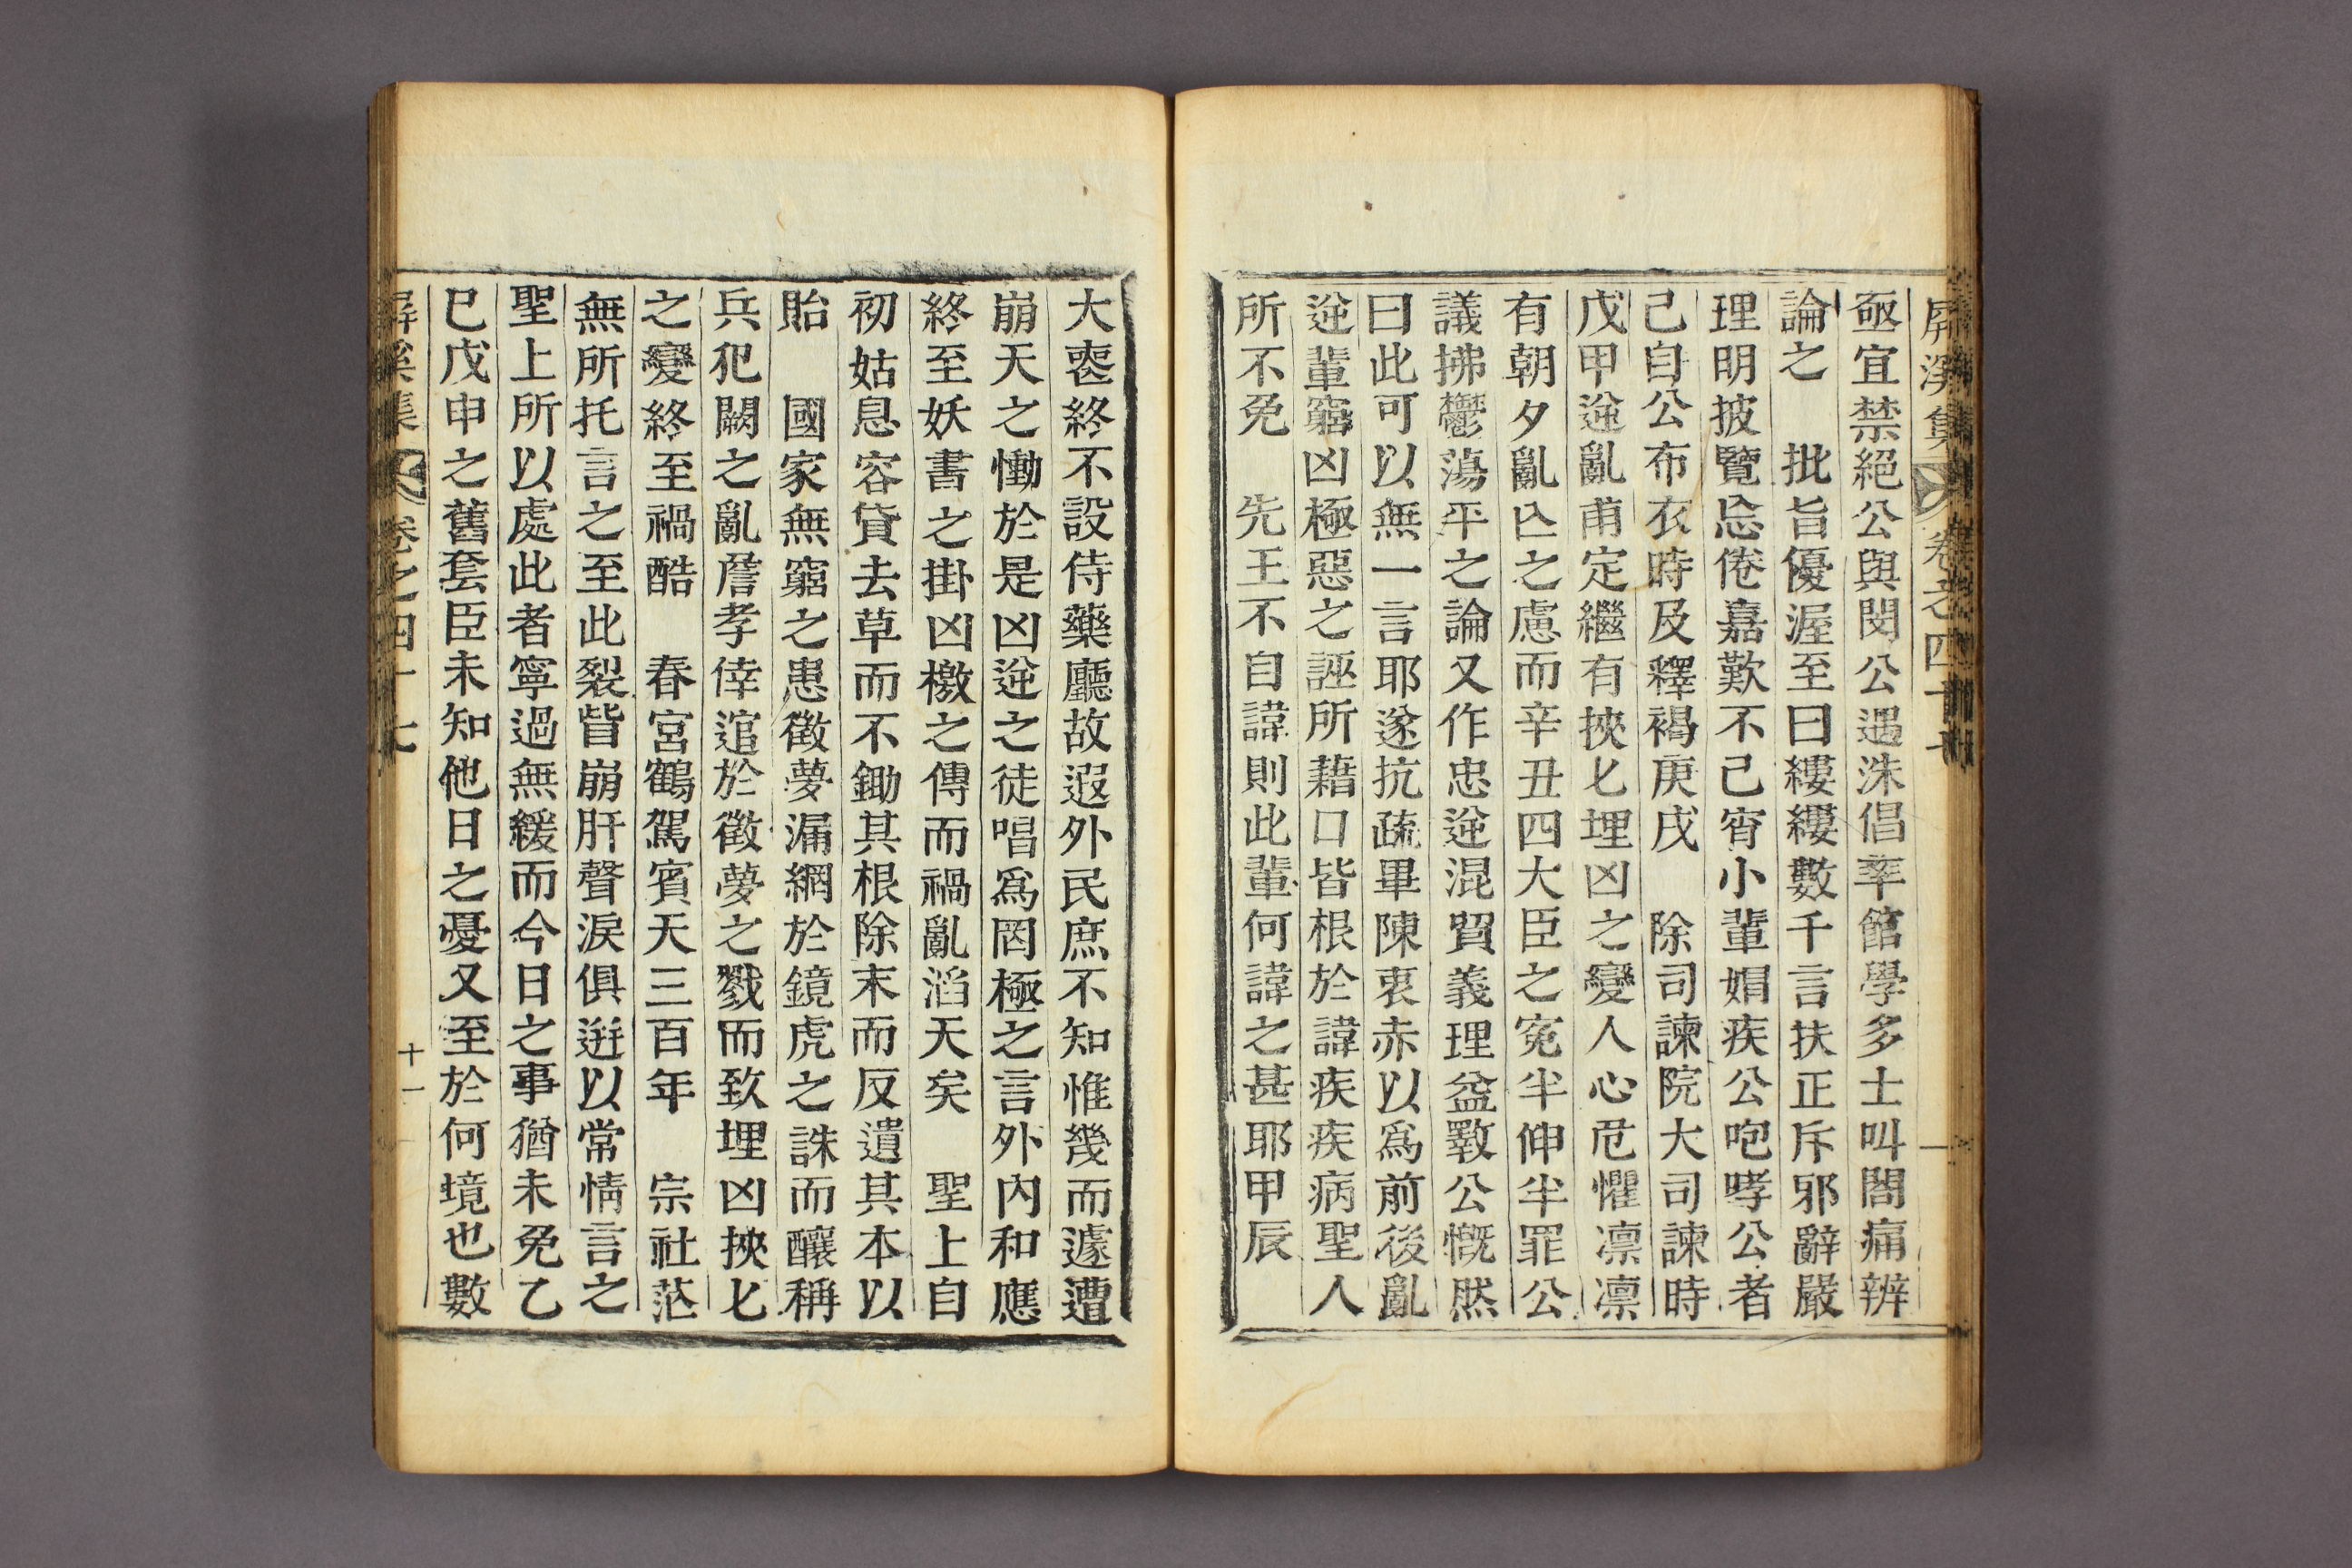 屏溪集 卷之四十七
亟宜禁絕公與閔公遇洙倡率館學多士叫閤痛辨
論之 批旨優渥至曰縷縷數千言扶正斥邪辭嚴
理明披覽忘倦嘉歎不已宵小輩娼疾公咆哮公者
己自公布衣時及釋褐庚戌 除司諫院大司諫時
戊甲逆亂甫定繼有挾匕埋凶之變人心危懼凛凛
有朝夕亂亾之慮而辛丑四大臣之寃半伸半罪公
議拂鬱蕩平之論又作忠逆混貿義理益斁公慨然
曰此可以無一言耶遂抗疏畢陳衷赤以爲前後亂
逆輩窮凶極惡之誣所藉口皆根於諱疾疾病聖人
所不免 先王不自諱則此輩何諱之甚耶甲辰
大喪終不設侍藥廳故遐外民庶不知惟幾而遽遭
崩天之慟於是凶逆之徒唱爲罔極之言外內和應
終至妖書之掛凶檄之傳而禍亂滔天矣 聖上自
初姑息容貸去草而不鋤其根除末而反遺其本以
貽 國家無窮之患徵夢漏網於鏡虎之誅而釀稱
兵犯闕之亂詹孝倖逭於徵夢之戮而致埋凶挾匕
之變終至禍酷 春宮鶴駕賓天三百年 宗社茫
無所托言之至此裂眥崩肝聲淚俱迸以常情言之
聖上所以處此者寧過無緩而今日之事猶未免乙
巳戊申之舊套臣未知他日之憂又至於何境也數
屏溪集 卷之四十七 十一